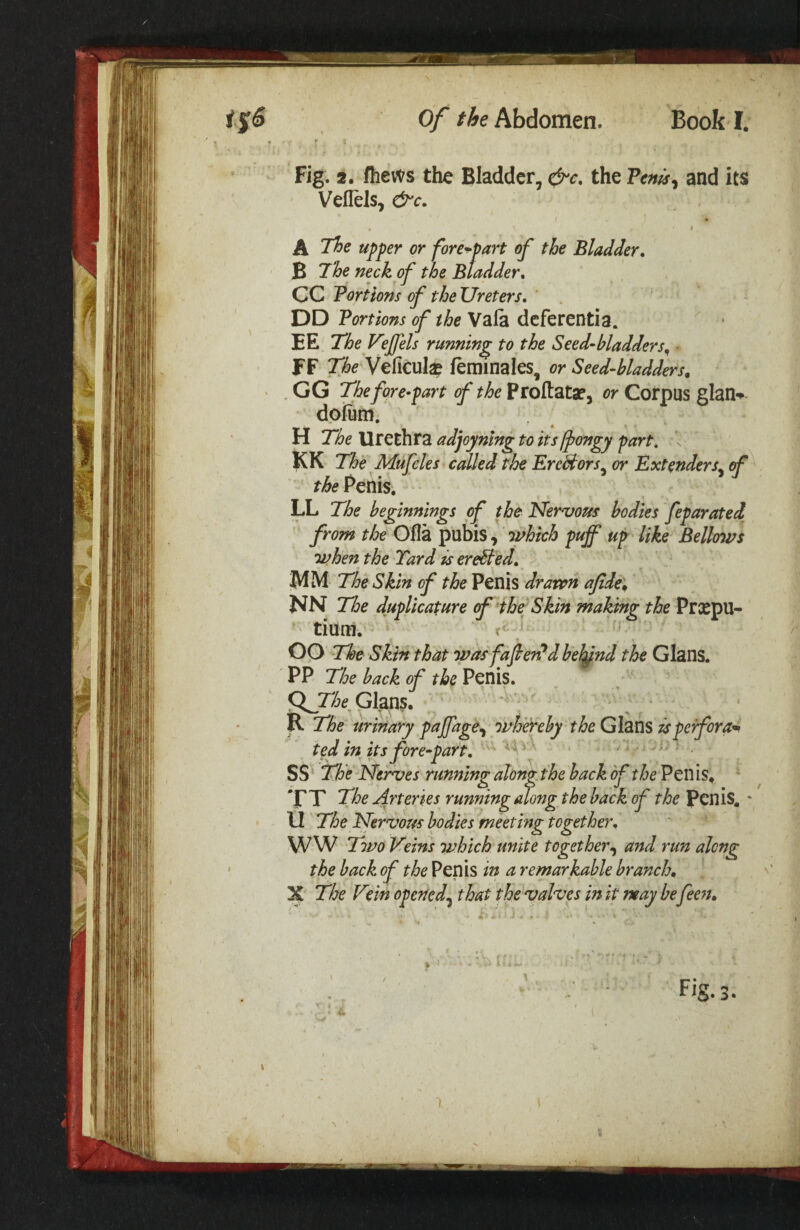 156 Of the Abdomen. Book I.
Fig. 2. ſhews the Bladder, &c. the Penis, and its
Veſſels, &c.
A The upper or fore-part of the Bladder.
B The neck of the Bladder.
CC Portions of the Ureters.
DD Portions of the Vaſa deferentia.
EE The Veſſels running to the Seed-bladders,
FF The Veſiculæ ſeminales, or Seed-bladders.
GG The fore-part of the Proſtatæ, or Corpus glan-
doſum.
H The Urethra adjoyning to its ſpongy part.
KK The Muſcles called the Erectors, or Extenders, of
the Penis.
LL The beginnings of the Nervous bodies ſeparated
from the Oſſa pubis, which puff up like Bellows
when the Yard is erected.
MM The Skin of the Penis drawn aſide.
NN The duplicature of the Skin making the Præpu-
tium.
OO The Skin that was faſten'd behind the Glans.
PP The back of the Penis.
Q The Glans.
R The urinary paſſage, whereby the Glans is perfora-
ted in its fore-part.
SS The Nerves running along the back of the Penis.
TT The Arteries running along the back of the Penis.
U The Nervous bodies meeting together.
WW Two Veins which unite together, and run along
the back of the Penis in a remarkable branch.
X The Vein opened, that the valves in it may be ſeen.
Fig. 3.